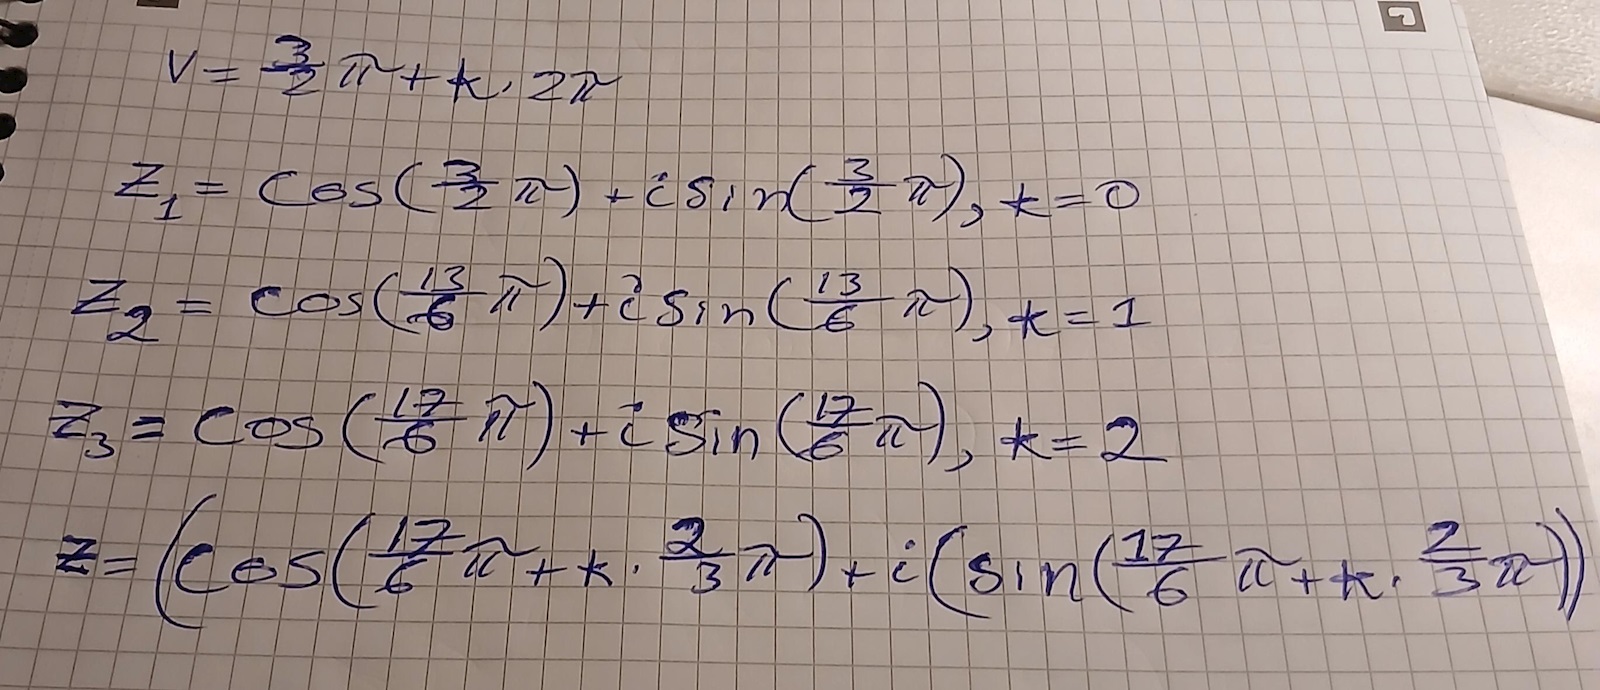 V = 3/2 π + k · 2π
Z₁ = cos(3/2 π) + i sin(3/2 π), k = 0
Z₂ = cos(13/6 π) + i sin(13/6 π), k = 1
Z₃ = cos(17/6 π) + i sin(17/6 π), k = 2
Z = (cos(17/6 π + k · 2/3 π) + i(sin(17/6 π + k · 2/3 π))